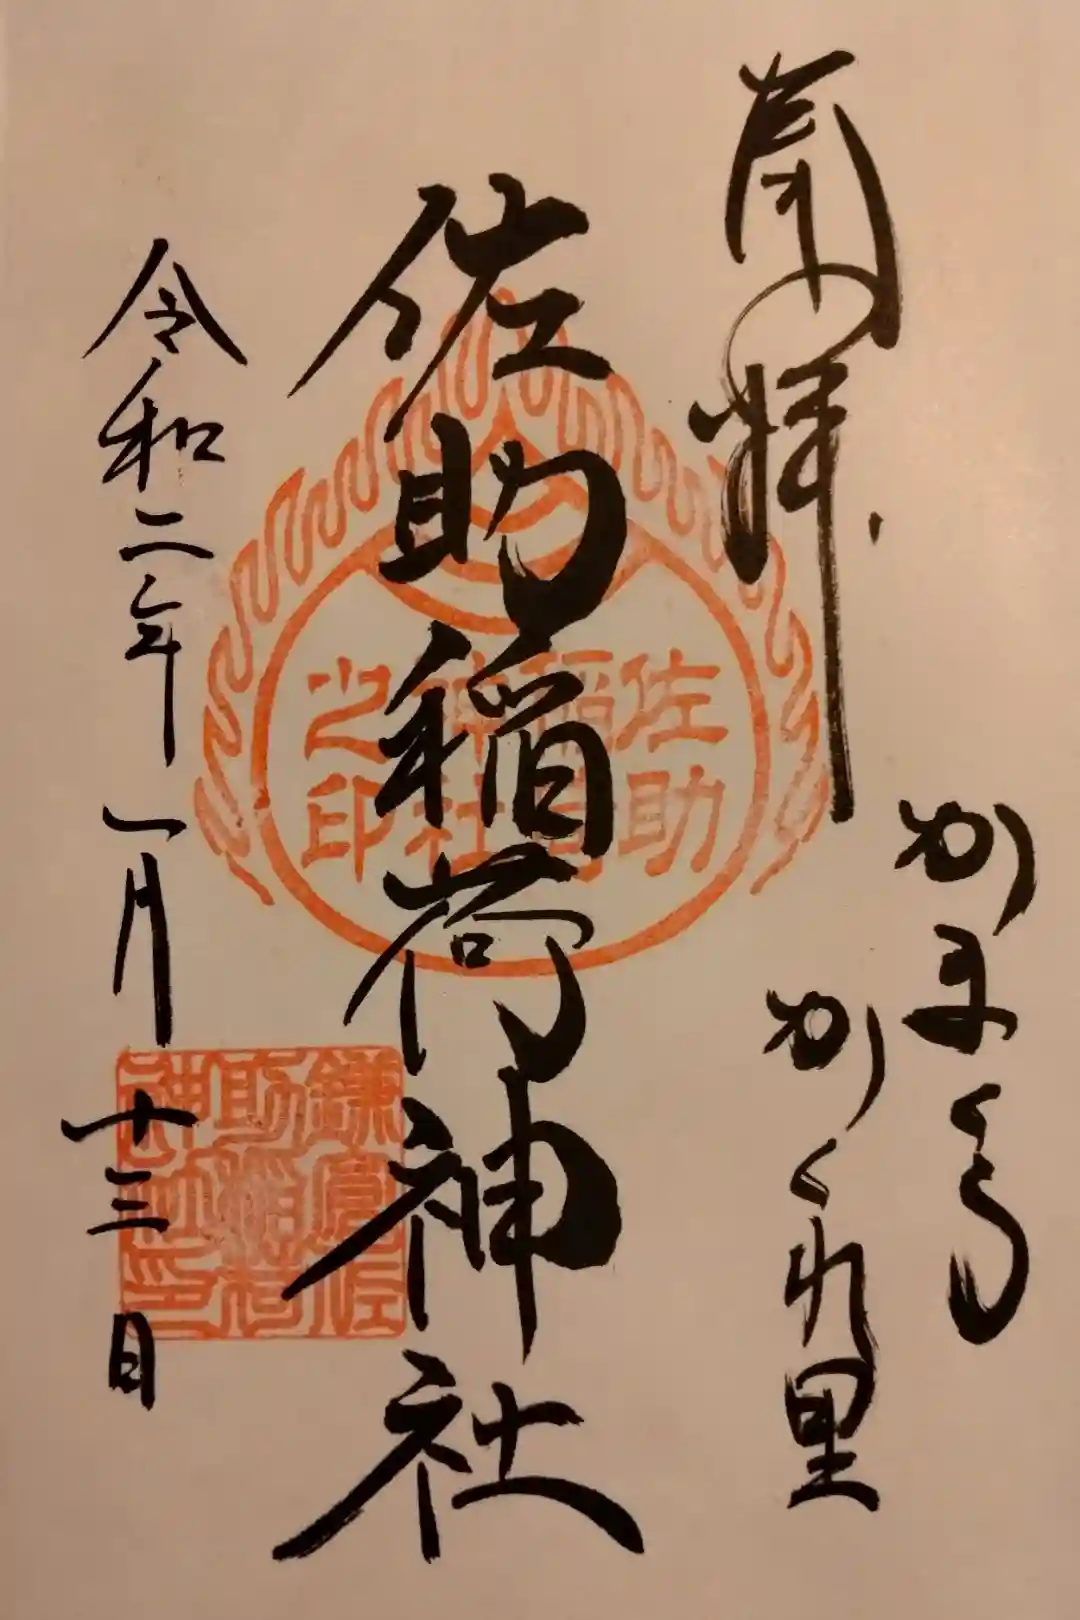 奉拝
かまくら
かくれ里
佐助稲荷神社
令和二年一月十三日
佐助
稲荷
神社
之印
鎌倉佐
助稲荷
神社印